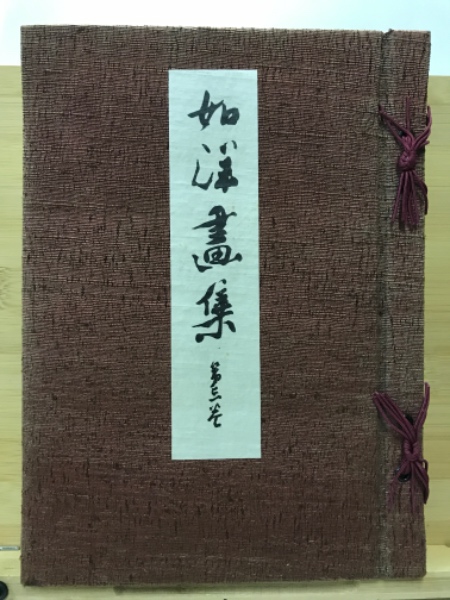 如洋畫集
第三卷